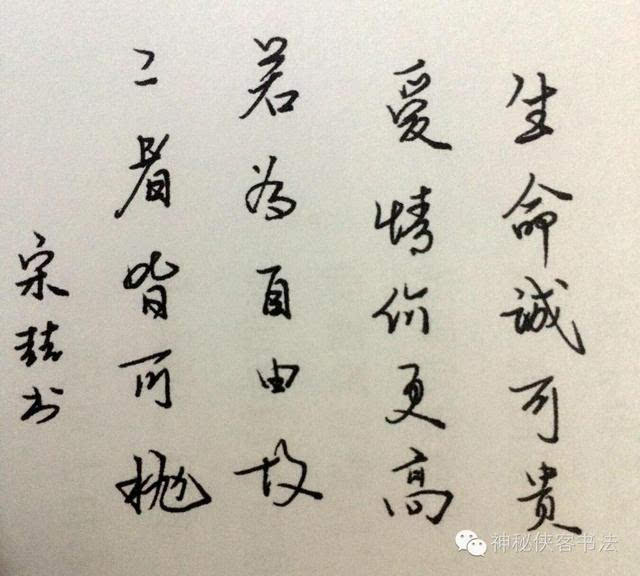 生命誠可貴
愛情价更高
若為自由故
二者皆可抛
宋喆书
神秘侠客书法